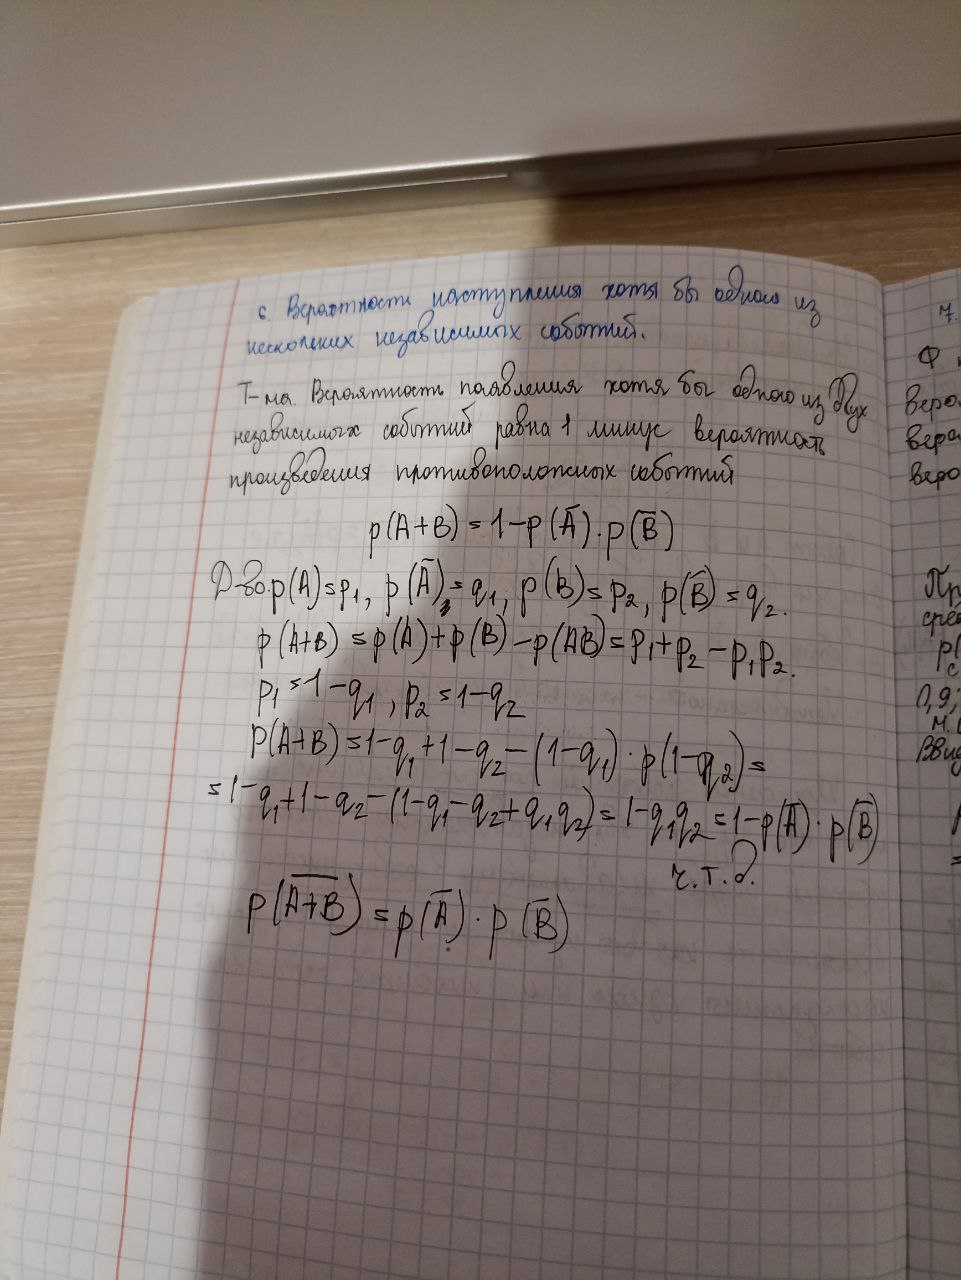 6. Вероятности наступления хотя бы одного из
нескольких независимых событий.
Т-ма. Вероятность появления хотя бы одного из двух
независимых событий равна 1 минус вероятность
произведения противоположных событий
p(A+B) = 1-p(Ā)·p(B̄)
Д-во. p(A)=p₁, p(Ā)=q₁, p(B)=p₂, p(B̄)=q₂.
p(A+B) = p(A)+p(B)-p(AB)=p₁+p₂-p₁p₂.
p₁=1-q₁, p₂=1-q₂
p(A+B)=1-q₁+1-q₂-(1-q₁)·p(1-q₂)=
=1-q₁+1-q₂-(1-q₁-q₂+q₁q₂)=1-q₁q₂=1-p(Ā)·p(B̄)
ч.т.д.
p(A̅+̅B̅)=p(Ā)·p(B̄)
7.
Ф
веро
веро
веро
Пр
сре
p(
с
0,9;
м.
Вви
=